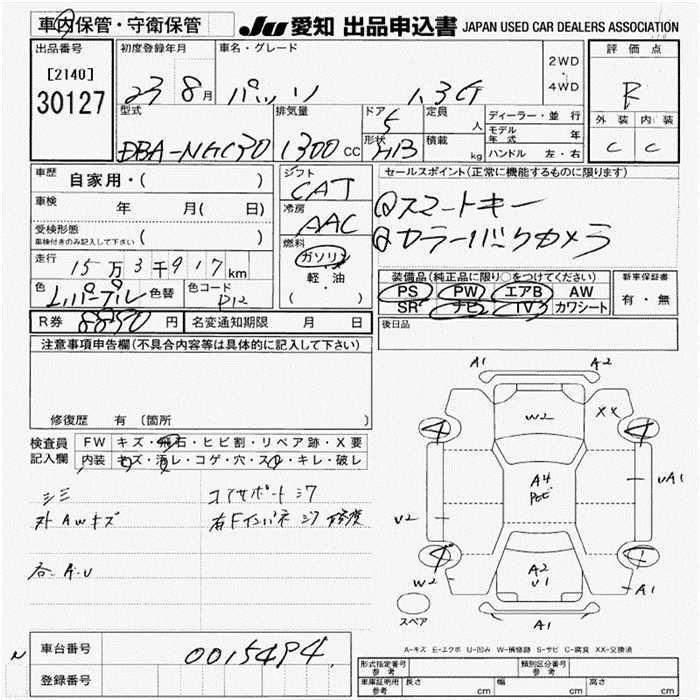 車内保管・守衛保管
JU 愛知 出品申込書 JAPAN USED CAR DEALERS ASSOCIATION
出品番号
[2140]
30127
初度登録年月
23 8月
車名・グレード
パッソ 1.3G
2WD
・
4WD
評価点
R
外装 内装
C C
型式
DBA-NGC30
排気量
1300 CC
ドア
5
形状
H/B
定員
人
積載
kg
ディーラー・並行
モデル年式 年
ハンドル 左・右
車歴
自家用・( )
車検
年 月( 日)
受検形態
車検付きのみ記入して下さい ( )
走行
15万3千917km
色
Lパープル
色替
色コード
P12
R券 8890 円
名変通知期限 月 日
シフト
CAT
冷房
AAC
燃料
ガソリン
軽・油
( )
セールスポイント(正常に機能するものに限ります)
スマートキー
カラーバックカメラ
装備品(純正品に限り○をつけてください)
PS PW エアB AW
SR ナビ TV カワシート
新車保証書
有・無
後日品
注意事項申告欄(不具合内容等は具体的に記入して下さい)
修復歴 有 (箇所 )
検査員
記入欄
FW キズ・飛石・ヒビ割・リペア跡・X要
内装 キズ・汚レ・コゲ・穴・スレ・キレ・破レ
シミ
外AWキズ
各A・U
コアサポートシワ
右Fインパネシワ 修復
A1 A2
W2 XX
4 4
A4
UA1
V2
4 4
A2
V1
W2 A1
A1
スペア
A-キズ E-エクボ U-凹み W-補修跡 S-サビ C-腐食 XX-交換済
N
車台番号
0015494
登録番号
形式指定番号
参考
類別区分番号
参考
車庫証明用
参考
長さ cm 幅 cm 高さ cm